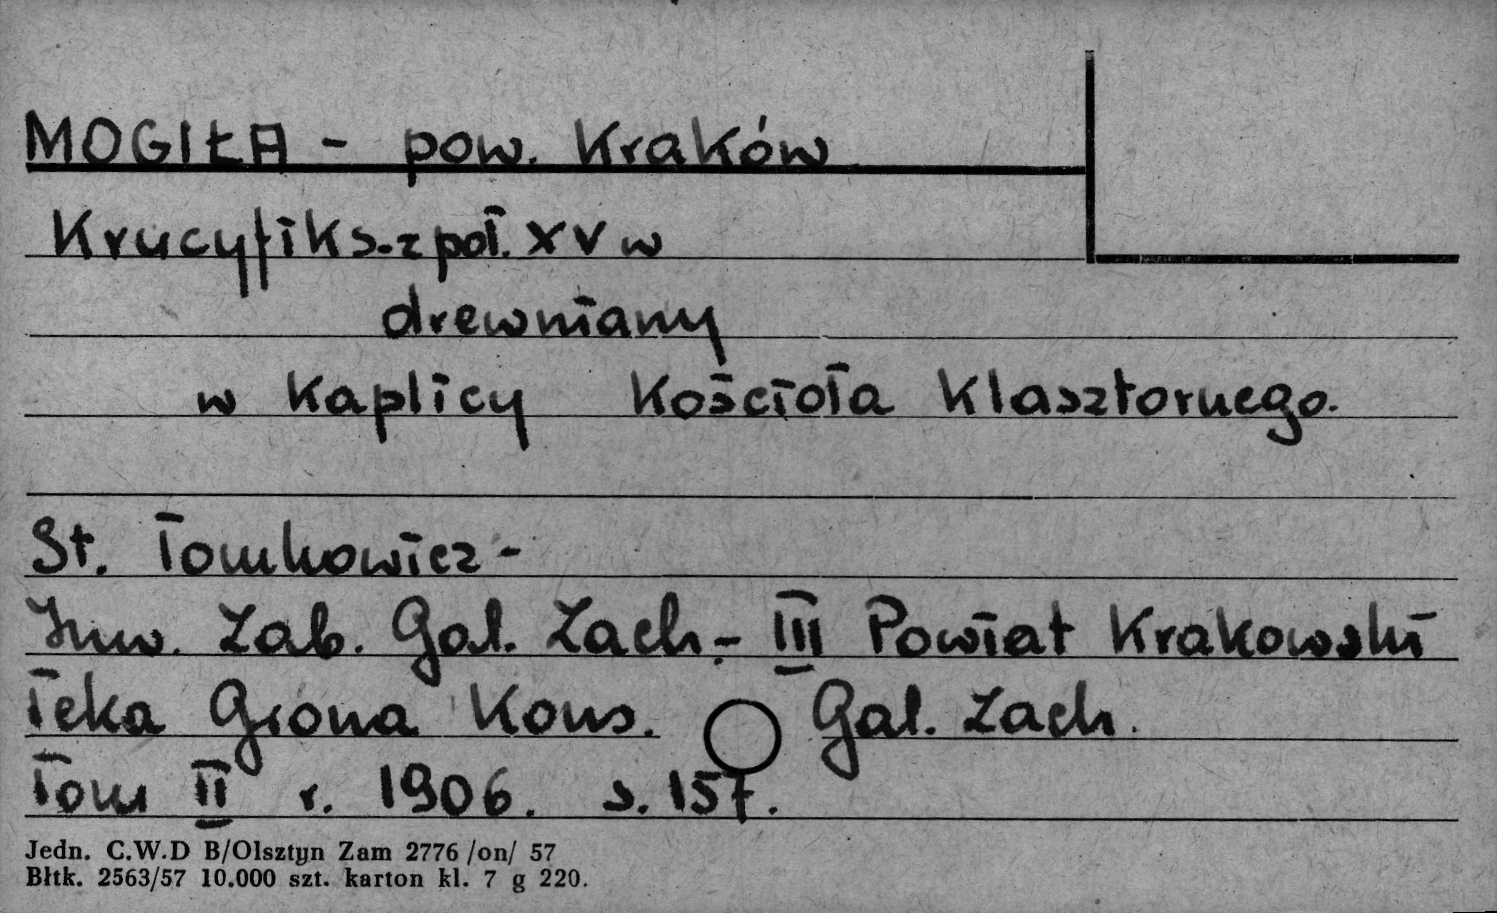 MOGIŁA - pow. Kraków
Krucyfiks - z poł. XV w
drewniany
w Kaplicy Kościoła Klasztornego.
St. Tomkowicz -
Inw. Zab. Gal. Zach - III Powiat Krakowski
Teka Grona Kons. Gal. Zach.
Tom II r. 1906. s. 157.
Jedn. C.W.D B/Olsztyn Zam 2776 /on/ 57
Błtk. 2563/57 10.000 szt. karton kl. 7 g 220.